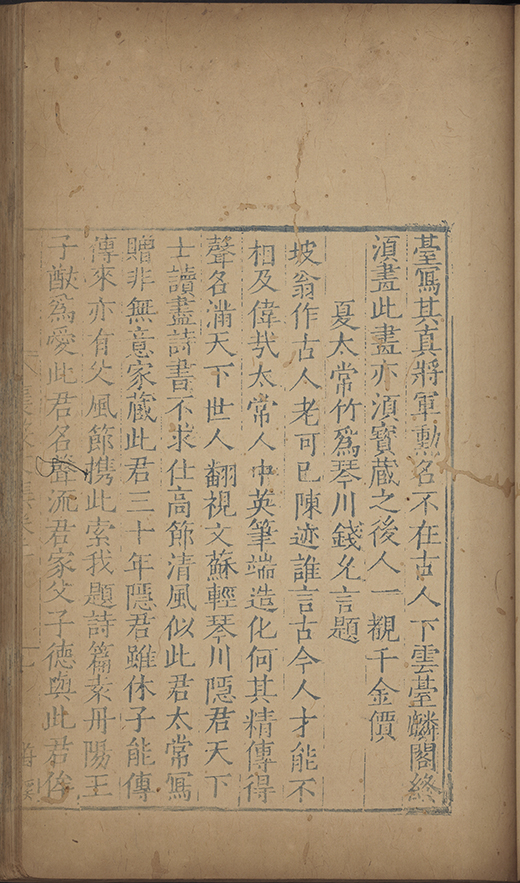 臺寫其真將軍勳名不在古人下雲臺麟閣終
湏畫此畫亦湏寳藏之後人一觀千金價
夏太常竹爲琴川錢允言題
坡翁作古人老可已陳迹誰言古今人才能不
相及偉哉太常人中英筆端造化何其精傳得
聲名滿天下世人翻視文蘇輕琴川隱君天下
士讀盡詩書不求仕高節清風似此君太常寫
贈非無意家藏此君三十年隱君雖休子能傳
傳來亦有父風節携此索我題詩篇素丹陽王
子猷爲愛此君名聲流君家父子德與此君侔